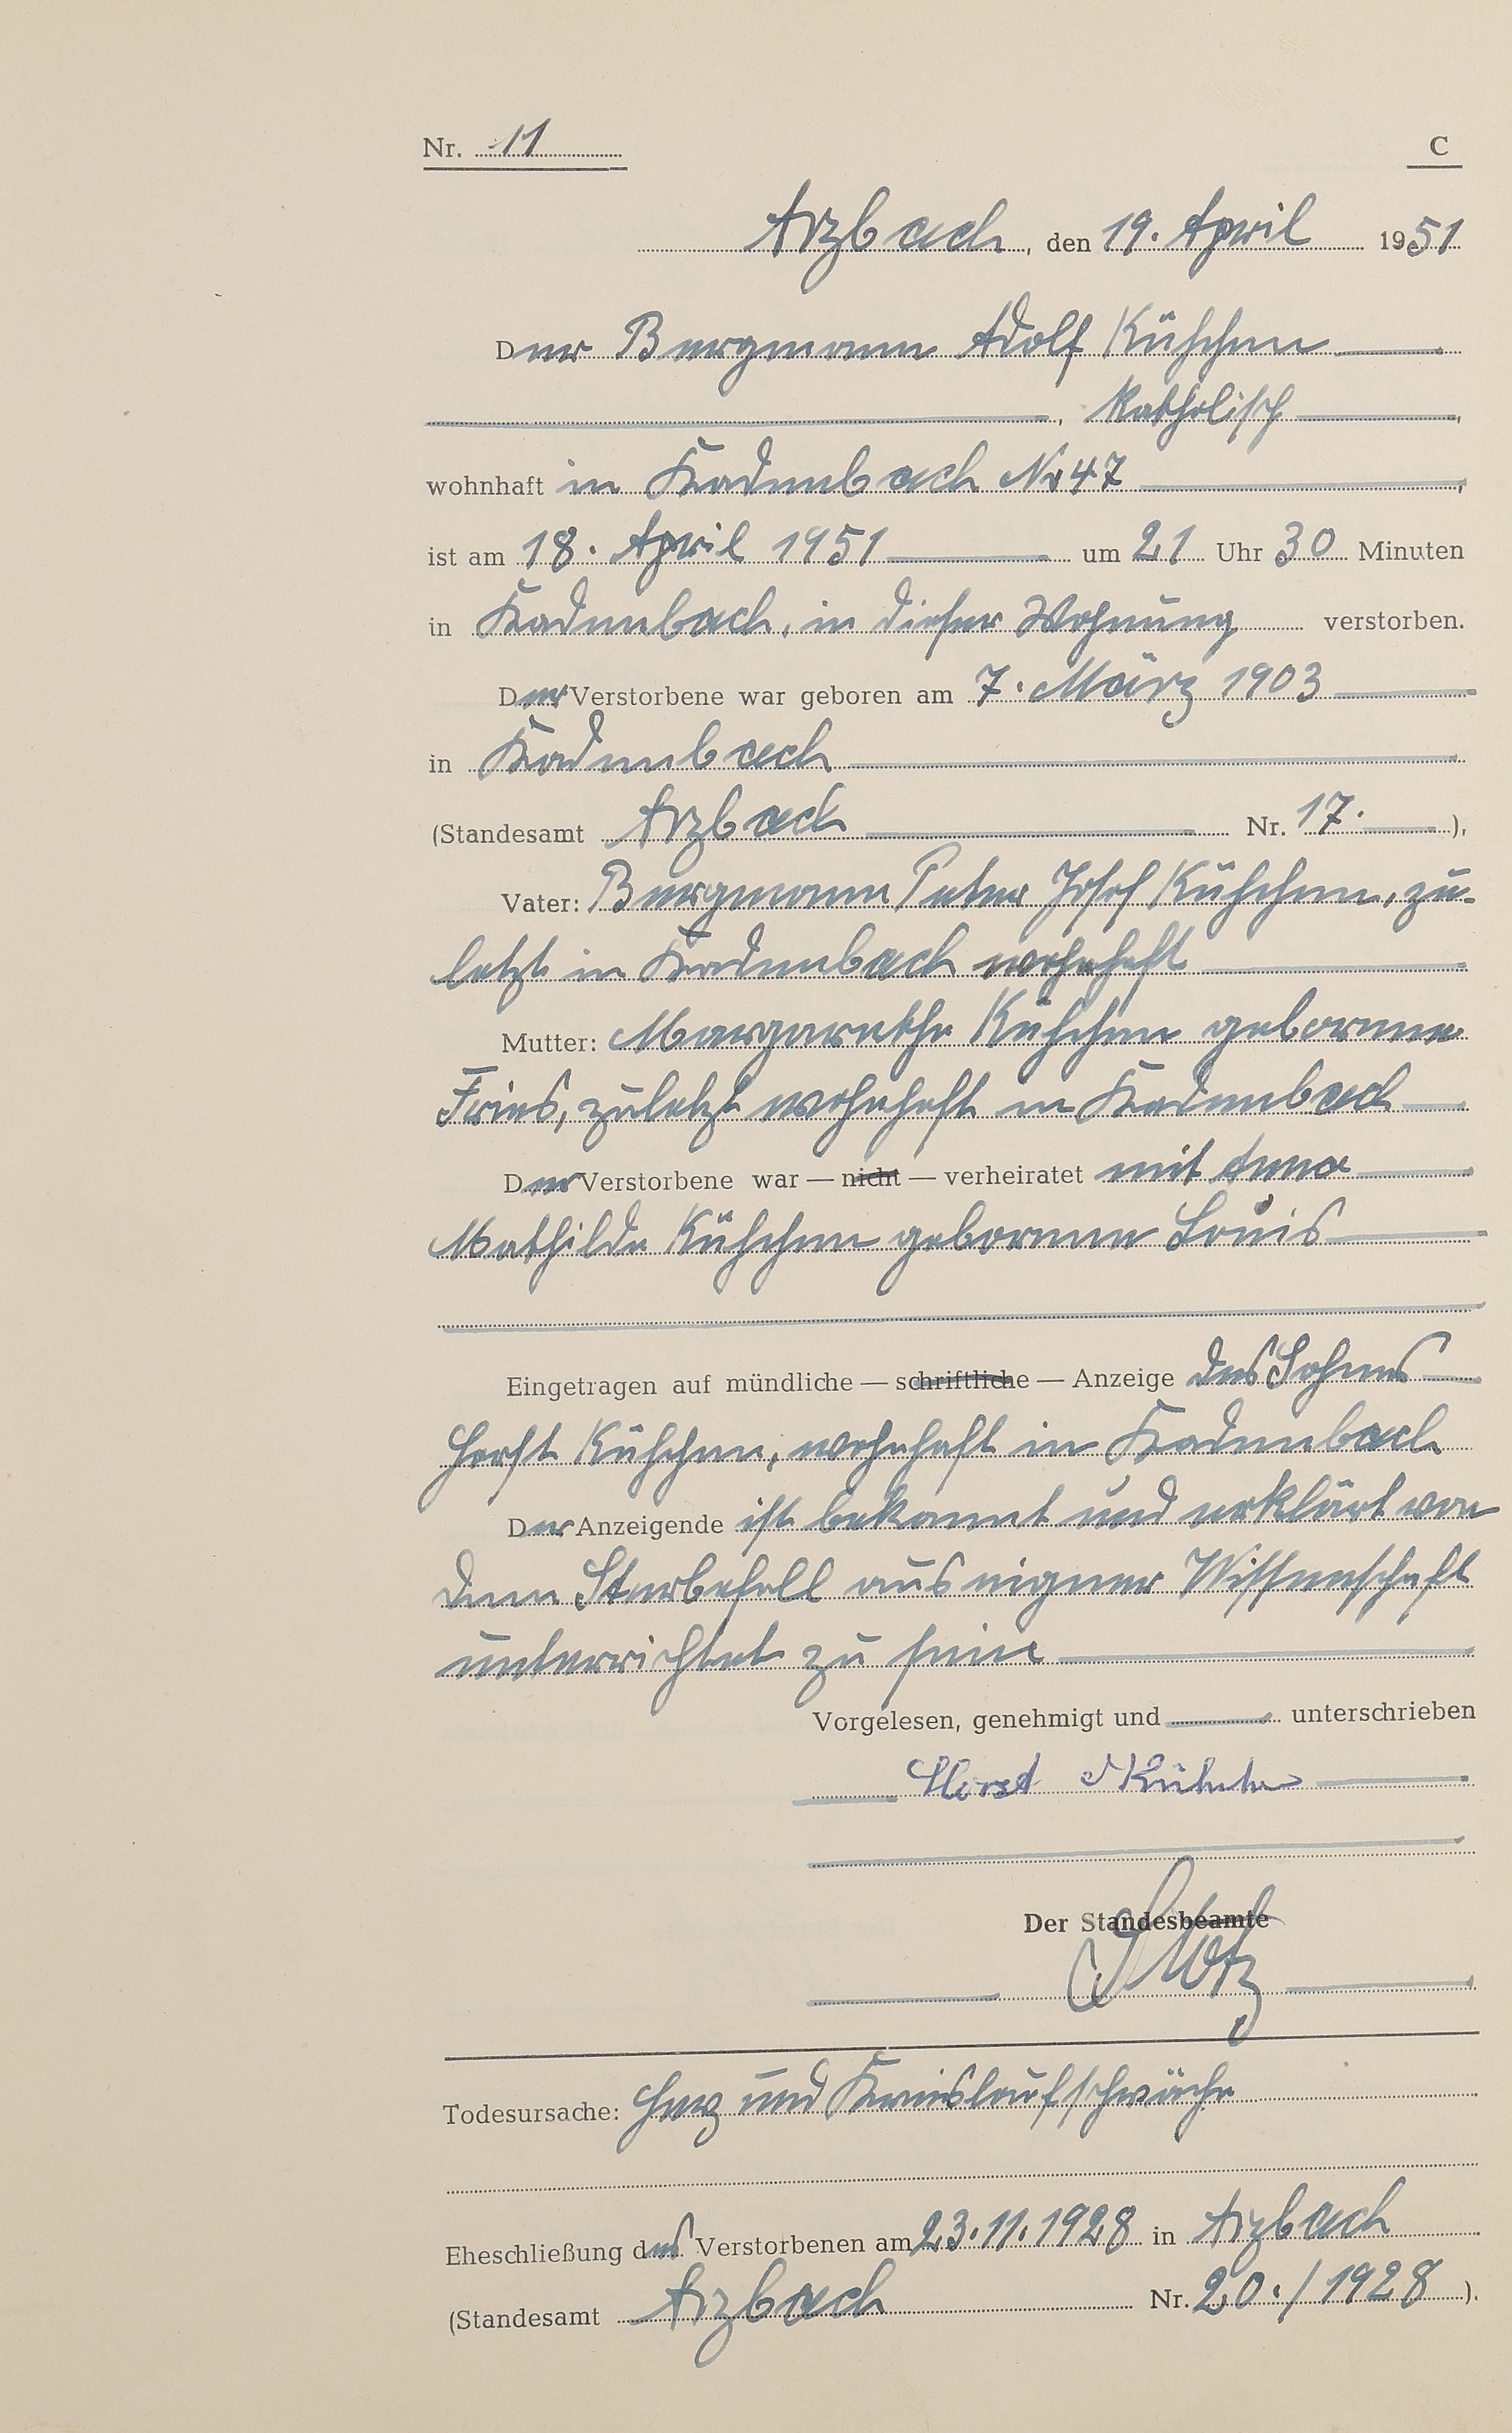 Nr. 11 C
Arzbach, den 19. April 1951
Der Bergmann Adolf Kühchen
, Katholisch,
wohnhaft in Kadenbach No 47,
ist am 18. April 1951 um 21 Uhr 30 Minuten
in Kadenbach, in dieser Wohnung verstorben.
Der Verstorbene war geboren am 7. März 1903
in Kadenbach
(Standesamt Arzbach Nr. 17. ),
Vater: Bergmann Peter Josef Kühchen, zu-
letzt in Kadenbach wohnhaft
Mutter: Margarethe Kühchen geborene
Fries, zuletzt wohnhaft in Kadenbach
Der Verstorbene war — nicht — verheiratet mit Anna
Mathilde Kühchen geborenen Louis
Eingetragen auf mündliche — schriftliche — Anzeige des Sohnes
Horst Kühchen, wohnhaft in Kadenbach
Der Anzeigende ist bekannt und erklärt von
dem Sterbefall aus eigner Wissenschaft
unterrichtet zu sein
Vorgelesen, genehmigt und unterschrieben
Horst
Der Standesbeamte
Todesursache: Herz und Kreislaufschwäche
Eheschließung des Verstorbenen am 23.11.1928 in Arzbach
(Standesamt Arzbach Nr. 20./1928 ).